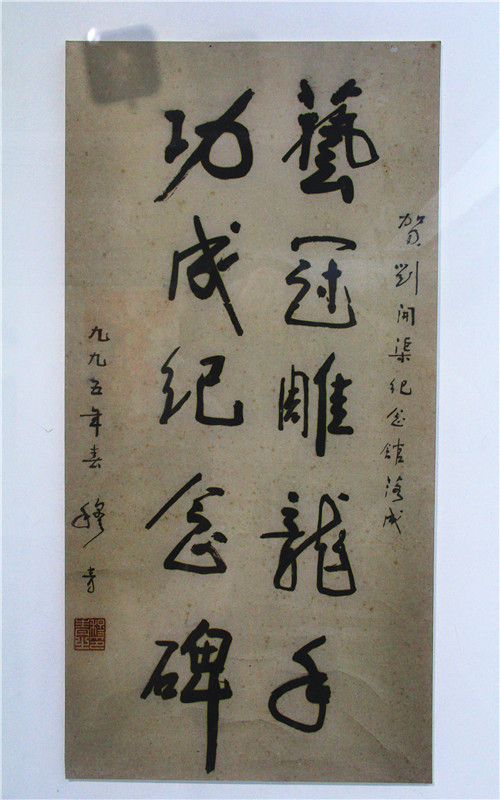 贺劉開渠纪念館落成
藝冠雕龍手
功成纪念碑
一九九五年春
穆青